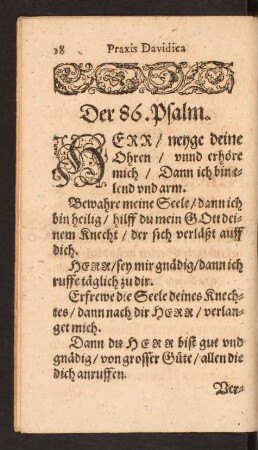 18 Praxis Davidica
Der 86. Psalm.
HERR / neyge deine
Ohren / vnnd erhöre
mich / Dann ich bin e-
lend vnd arm.
Bewahre meine Seele / dann ich
bin heilig / hilff du mein GOtt dei-
nem Knecht / der sich verläßt auff
dich.
HERR / sey mir gnädig / dann ich
ruffe täglich zu dir.
Erfrewe die Seele deines Knech-
tes / dann nach dir HERR / verlan-
get mich.
Dann du HERR bist gut vnd
gnädig / von grosser Güte / allen die
dich anruffen.
Ver-